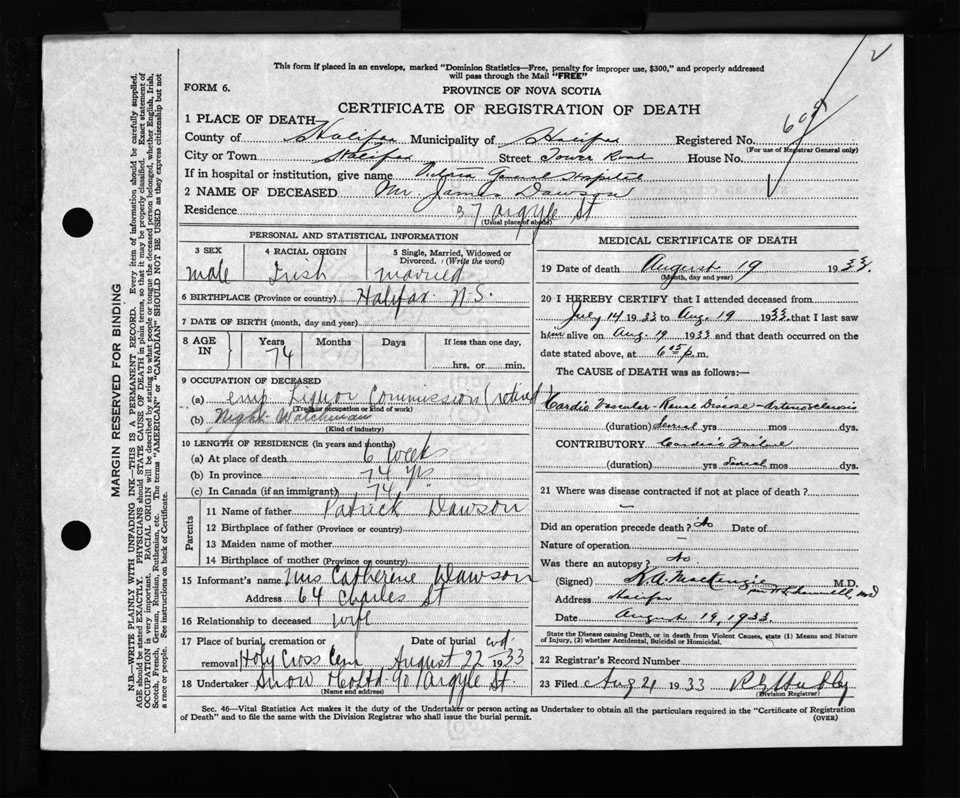 This form if placed in an envelope, marked "Dominion Statistics—Free, penalty for improper use, $300," and properly addressed
will pass through the Mail "FREE"
FORM 6.
PROVINCE OF NOVA SCOTIA
CERTIFICATE OF REGISTRATION OF DEATH
1 PLACE OF DEATH—
County of Halifax Municipality of Halifax Registered No.
(For use of Registrar General only)
City or Town Halifax Street Tower Road House No.
If in hospital or institution, give name Victoria General Hospital
2 NAME OF DECEASED Mr. James Dawson
Residence 37 Argyle St
(Usual place of abode)
PERSONAL AND STATISTICAL INFORMATION
3 SEX 4 RACIAL ORIGIN 5 Single, Married, Widowed or
Divorced. (Write the word)
male Irish married
6 BIRTHPLACE (Province or country) Halifax N.S.
7 DATE OF BIRTH (month, day and year)
8 AGE IN Years Months Days If less than one day,
74 hrs. or min.
9 OCCUPATION OF DECEASED
(a) emp Liquor Commission (retired)
(Trade or occupation or kind of work)
(b) Night Watchman
(Kind of industry)
10 LENGTH OF RESIDENCE (in years and months)
(a) At place of death 6 weeks
(b) In province 74 yrs
(c) In Canada (if an immigrant) 74
Parents
11 Name of father Patrick Dawson
12 Birthplace of father (Province or country)
13 Maiden name of mother
14 Birthplace of mother (Province or country)
15 Informant's name Mrs Catherine Dawson
Address 64 Charles St
16 Relationship to deceased wife
17 Place of burial, cremation or Date of burial
removal Holy Cross Cem August 22 1933
18 Undertaker Snow & Co Ltd 90 Argyle St
(Name and address)
MEDICAL CERTIFICATE OF DEATH
19 Date of death August 19 1933.
(Month, day and year)
20 I HEREBY CERTIFY that I attended deceased from
July 14 1933 to Aug. 19 1933. that I last saw
him alive on Aug. 19 1933 and that death occurred on the
date stated above, at 6 05 p. m.
The CAUSE OF DEATH was as follows:—
Cardio Vascular-Renal Disease-Arteriosclerosis
(duration) Several yrs mos dys.
CONTRIBUTORY Cardiac Failure
(duration) yrs Several mos dys.
21 Where was disease contracted if not at place of death?
Did an operation precede death? No Date of
Nature of operation
Was there an autopsy? No
(Signed) K. A. MacKenzie M.D.
Address Halifax
Date August 19, 1933.
State the Disease causing Death, or in death from Violent Causes, state (1) Means and Nature
of Injury, (2) whether Accidental, Suicidal or Homicidal.
22 Registrar's Record Number
23 Filed Aug 21 1933
(Division Registrar)
Sec. 46—Vital Statistics Act makes it the duty of the Undertaker or person acting as Undertaker to obtain all the particulars required in the "Certificate of Registration
of Death" and to file the same with the Division Registrar who shall issue the burial permit.
(OVER)
MARGIN RESERVED FOR BINDING
N.B.—WRITE PLAINLY WITH UNFADING INK—THIS IS A PERMANENT RECORD. Every item of information should be carefully supplied.
AGE should be stated EXACTLY. PHYSICIANS should STATE CAUSE OF DEATH in plain terms, so that it may be properly classified. Exact statement of
OCCUPATION is very important. RACIAL ORIGIN will be described by stating to what people or tongue the deceased person belonged, whether English, Irish,
Scotch, French, German, Russian, Ruthenian, etc. The terms "AMERICAN" or "CANADIAN" SHOULD NOT BE USED as they express citizenship but not
a race or people. See instructions on back of Certificate.